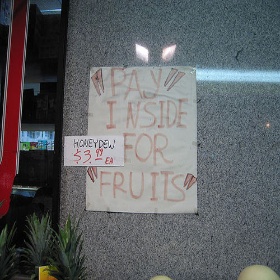 PAY
INSIDE
FOR
FRUITS
HONEYDEW
$3.99
EA